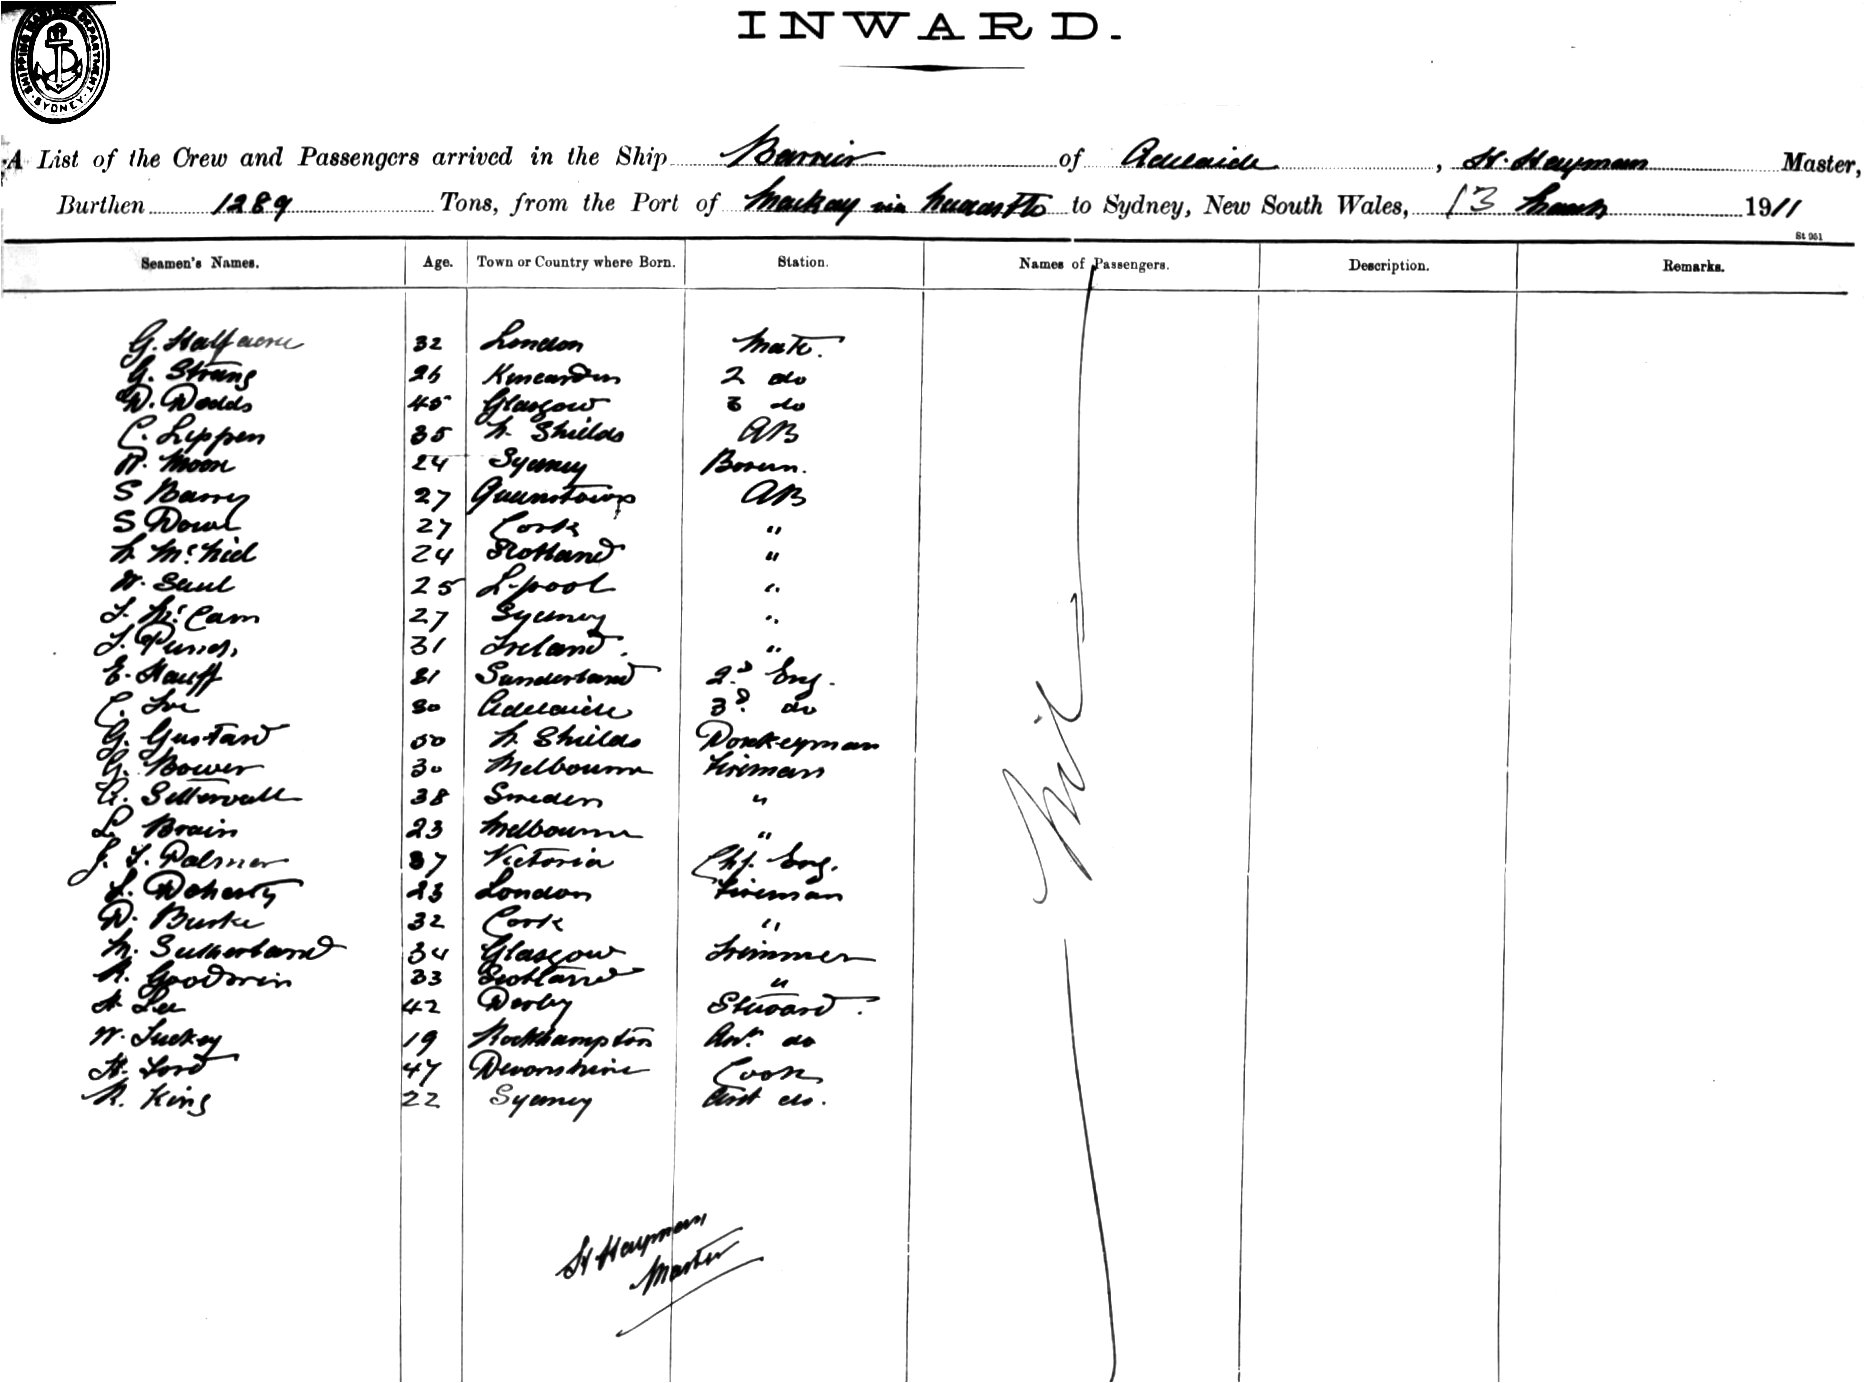 SHIPPING MASTER'S DEPARTMENT
SYDNEY
INWARD.
A List of the Crew and Passengers arrived in the Ship Barrier of Adelaide, H. Hayman Master,
Burthen 1289 Tons, from the Port of Mackay via Newcastle to Sydney, New South Wales, 13 March 1911
St 951
Seamen's Names. Age. Town or Country where Born. Station. Names of Passengers. Description. Remarks.
G. Halfacre 32 London Mate.
G. Strang 26 Kincardin 2 do
D. Dodds 45 Glasgow 3 do
C. Lippen 35 N. Shields AB
W. Moon 24 Sydney Bosun.
S Barry 27 Queenstown AB
S Dowl 27 Cork "
N. McNeil 24 Scotland "
W. Saul 25 L-pool "
J. McCam 27 Sydney "
J. 31 Ireland. "
E. Hauff 31 Sunderland 2d Eng.
C. Ive 30 Adelaide 3d. do
G. Gustard 50 N. Shields Donkeyman
G. Bower 30 Melbourne Fireman
A. Settervall 38 Sweden "
L. Brain 23 Melbourne "
J. F. Palmer 37 Victoria Chf. Eng.
J. Doherty 23 London Fireman
D. Burke 32 Cork "
M. Sutherland 34 Glasgow Trimmer
R. Goodwin 33 Scotland "
A. Lee 42 Derby Steward.
W. Tuckey 19 Rockhampton do
H. Lord 47 Devonshire Cook
R. King 22 Sydney Asst do.
Nil
H Hayman
Master